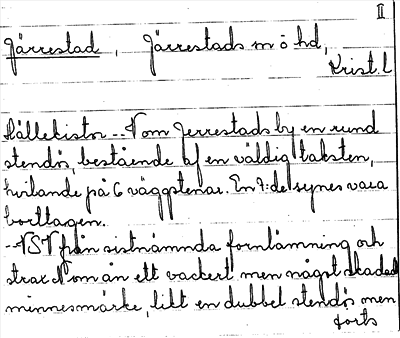 II
Järrestad, Järrestads m ö hd,
Krist. L
Hällekistor -- N om Jerrestads by en rund
stendös, bestående af en väldig taksten,
hvilande på 6 väggstenar. En 7:de synes vara
borttagen.
-- NSV från sistnämnda fornlämning och
strax N om ån ett vackert men något skadadt
minnesmärke, likt en dubbel stendös men
forts